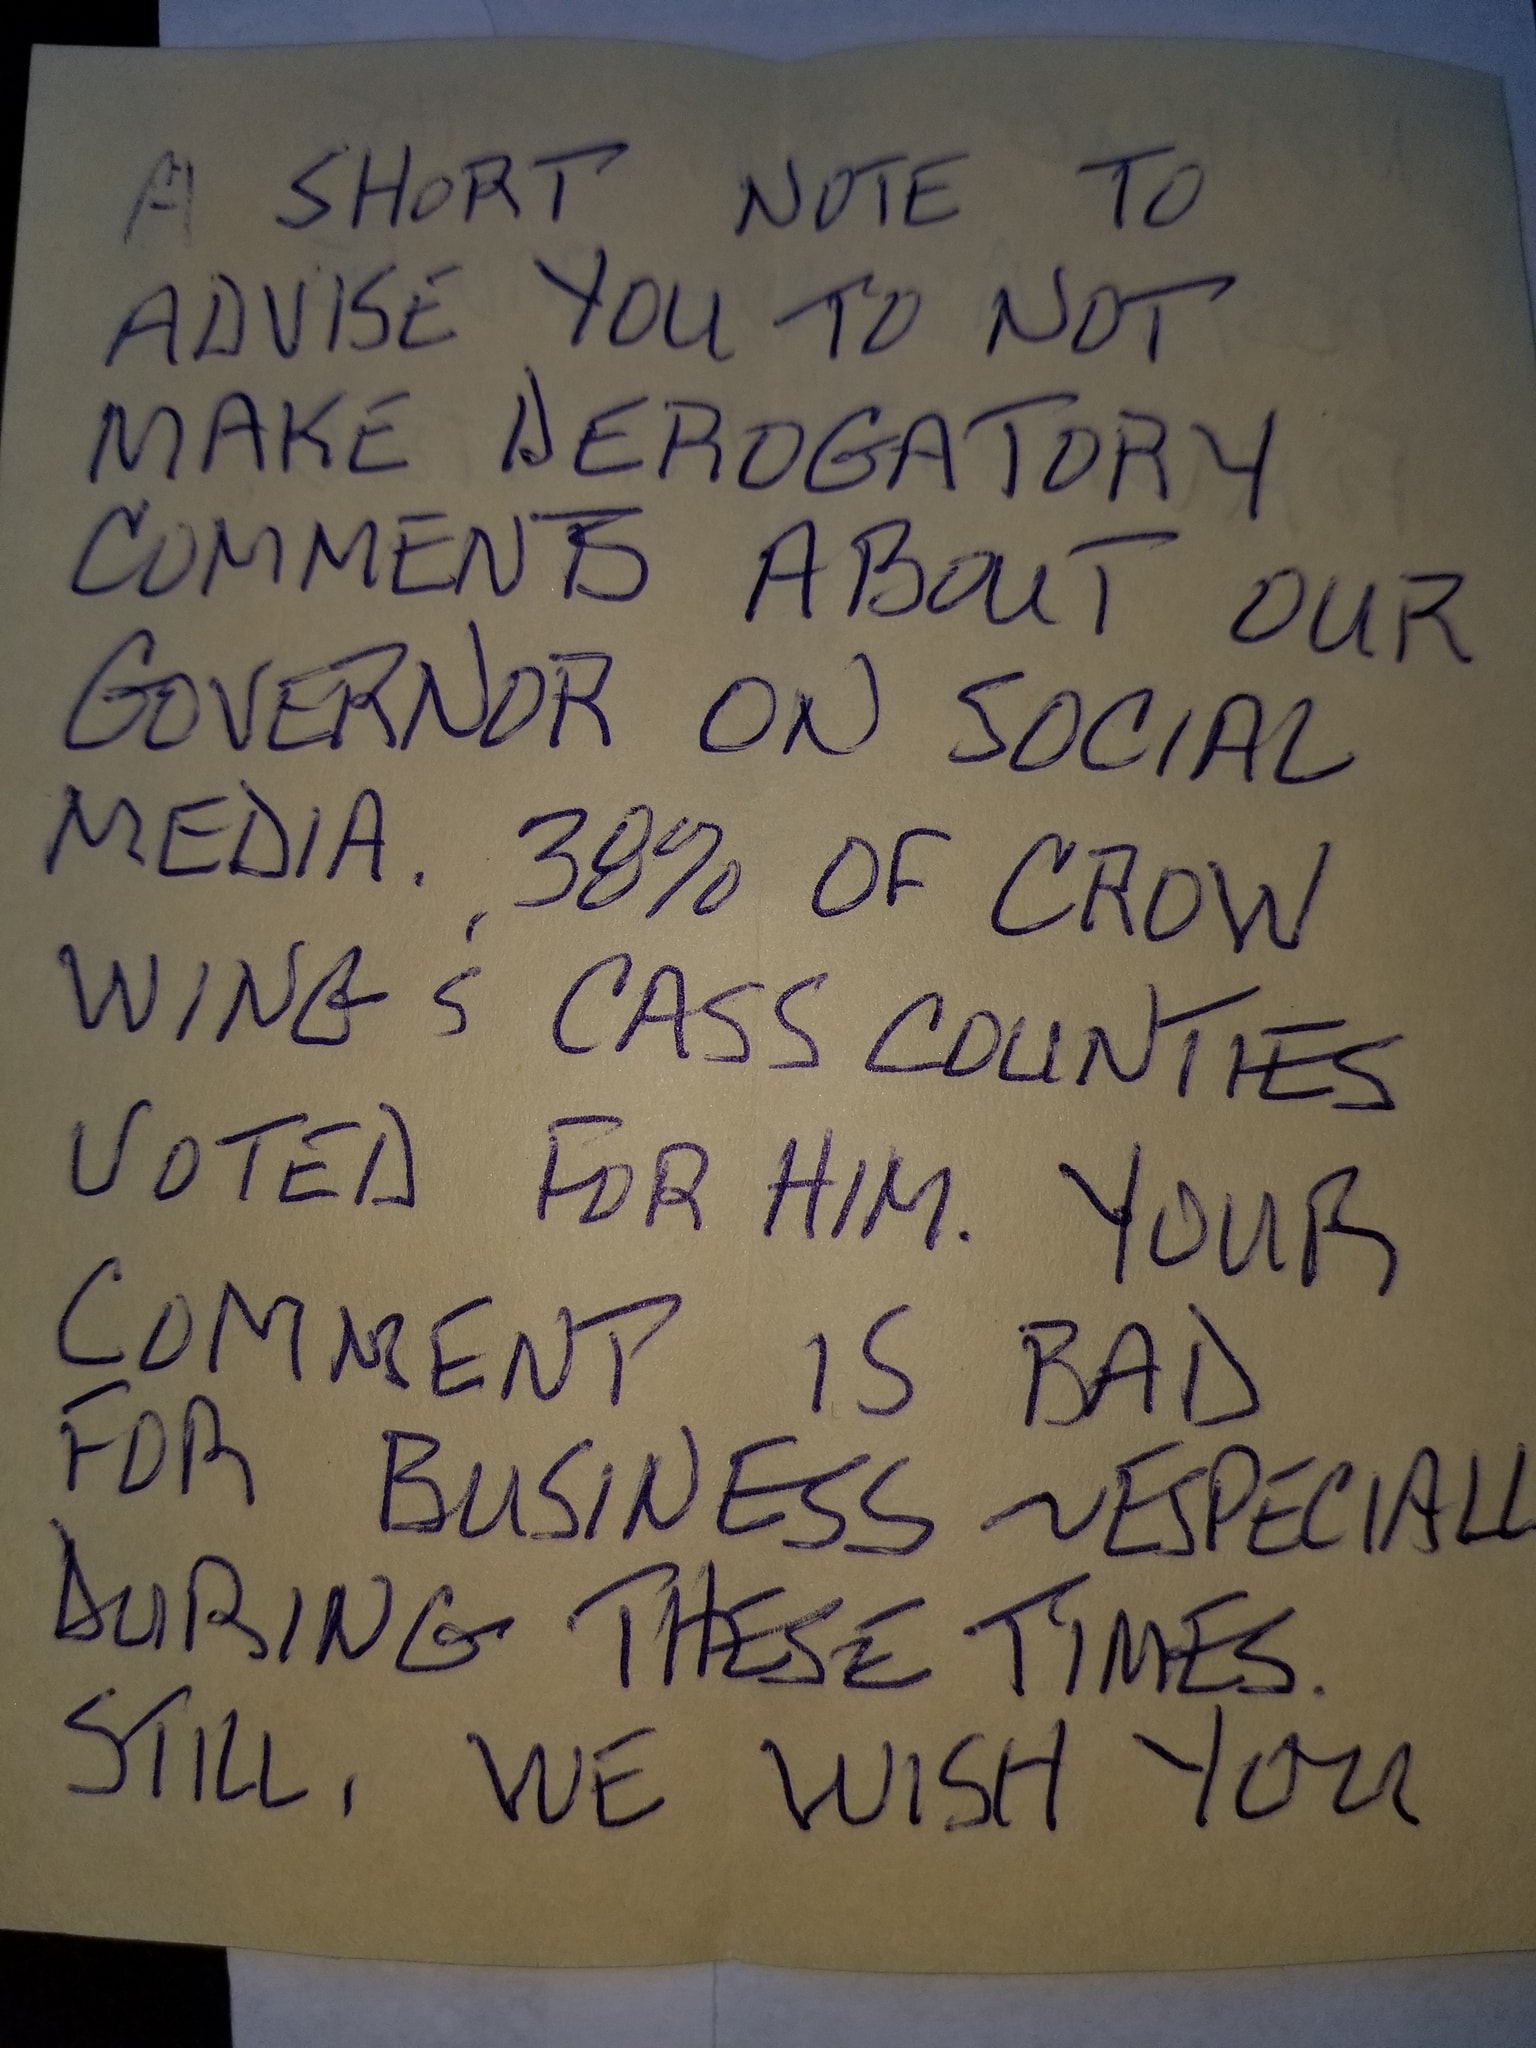 A SHORT NOTE TO
ADVISE YOU TO NOT
MAKE DEROGATORY
COMMENTS ABOUT OUR
GOVERNOR ON SOCIAL
MEDIA. 38% OF CROW
WING & CASS COUNTIES
VOTED FOR HIM. YOUR
COMMENT IS BAD
FOR BUSINESS ~ESPECIALL
DURING THESE TIMES.
STILL, WE WISH YOU